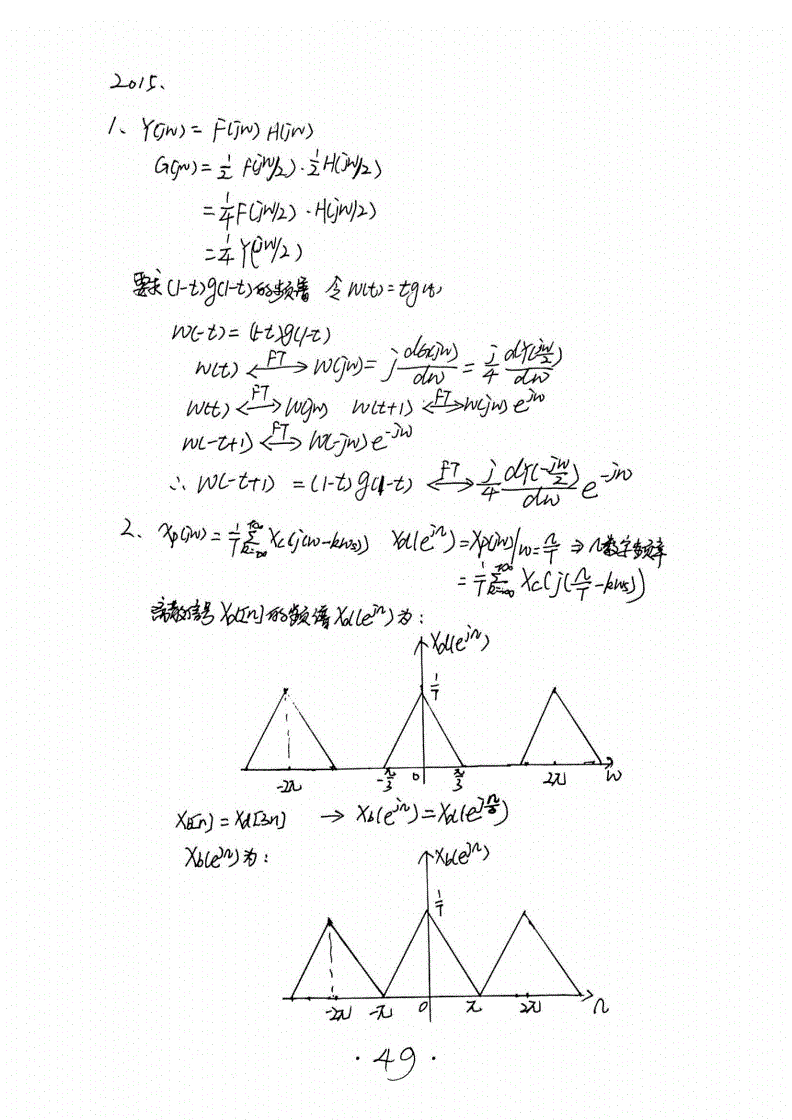 2015、
1、Y(jw) = F(jw) H(jw)
G(jw) = 1/2 F(jw/2) · 1/2 H(jw/2)
= 1/4 F(jw/2) · H(jw/2)
= 1/4 Y(jw/2)
要求 (1-t)g(1-t) 的频谱 令 w(t) = tg(t)
w(-t) = (-t)g(-t)
w(t) <—FT—> W(jw) = j dG(jw)/dw = j/4 dY(jw/2)/dw
w(t) <—FT—> W(jw) w(t+1) <—FT—> W(jw) e^{jw}
w(-t+1) <—FT—> W(-jw) e^{-jw}
∴ w(-t+1) = (1-t) g(1-t) <—FT—> j/4 dY(-jw/2)/dw e^{-jw}
2、Xp(jw) = 1/T Σ_{k=-∞}^{+∞} Xc(j(w-kws)) Xd(e^{jΩ}) = Xp(jw)|w=Ω/T ⇒ Ω数字频率
= 1/T Σ_{k=-∞}^{+∞} Xc(j(Ω/T - kws))
离散信号 Xd[n] 的频谱 Xd(e^{jΩ}) 为:
Xd(e^{jΩ})
1/T
-2π -π/3 0 π/3 2π w
Xb[n] = Xd[3n] → Xb(e^{jΩ}) = Xd(e^{jΩ/3})
Xb(e^{jΩ}) 为:
Xb(e^{jΩ})
1/T
-2π -π 0 π 2π Ω
· 49 ·